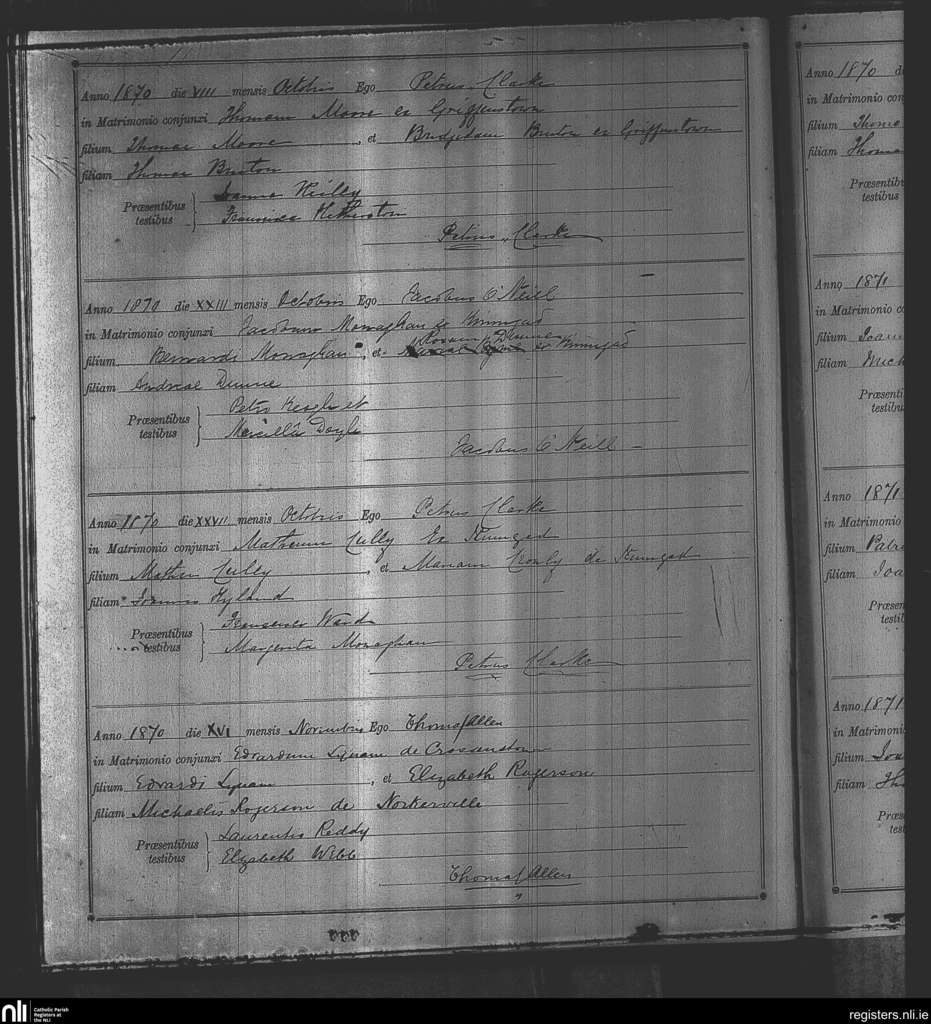 Anno 1870 die VIII mensis Octobris Ego Petrus Clarke
in Matrimonio conjunxi Thomam Moore ex Griffinstown
filium Thomae Moore et Bridgidam Bruton ex Griffinstown
filiam Thomae Bruton
Præsentibus testibus
Joanna Reilly
Francisca Hetherston
Petrus Clarke
Anno 1870 die XXIII mensis Octobris Ego Jacobus O'Neill
in Matrimonio conjunxi Jacobum Monaghan ex Kinnegad
filium Bernardi Monaghan, et Dunne ex Kinnegad
filiam Andreae Dunne
Præsentibus testibus
Petro Keogh et
Doyle
Jacobus O'Neill
Anno 1870 die XXVII mensis Octobris Ego Petrus Clarke
in Matrimonio conjunxi Matheum Cully Ex Kinnegad
filium Mathei Cully, et Mariam de Kinnegad
filiam Joannis Hyland
Præsentibus testibus
Ward
Margarita Monaghan
Petrus Clarke
Anno 1870 die XVI mensis Novembris Ego Thomas Allen
in Matrimonio conjunxi Edvardum Lynam de Crossanstown
filium Edvardi Lynam, et Elizabeth Rogerson
filiam Michaelis Rogerson de Norkerville
Præsentibus testibus
Laurentis Reddy
Elizabeth Webb
Thomas Allen
Anno 1870
in Matrimonio
filium
filiam
Præsentibus
testibus
Anno 1871
in Matrimonio
filium
filiam
Anno 1871
in Matrimonio
filium
filiam
Anno 1871
in Matrimonio
filium
filiam
nli
Catholic Parish
Registers at
the NLI
registers.nli.ie